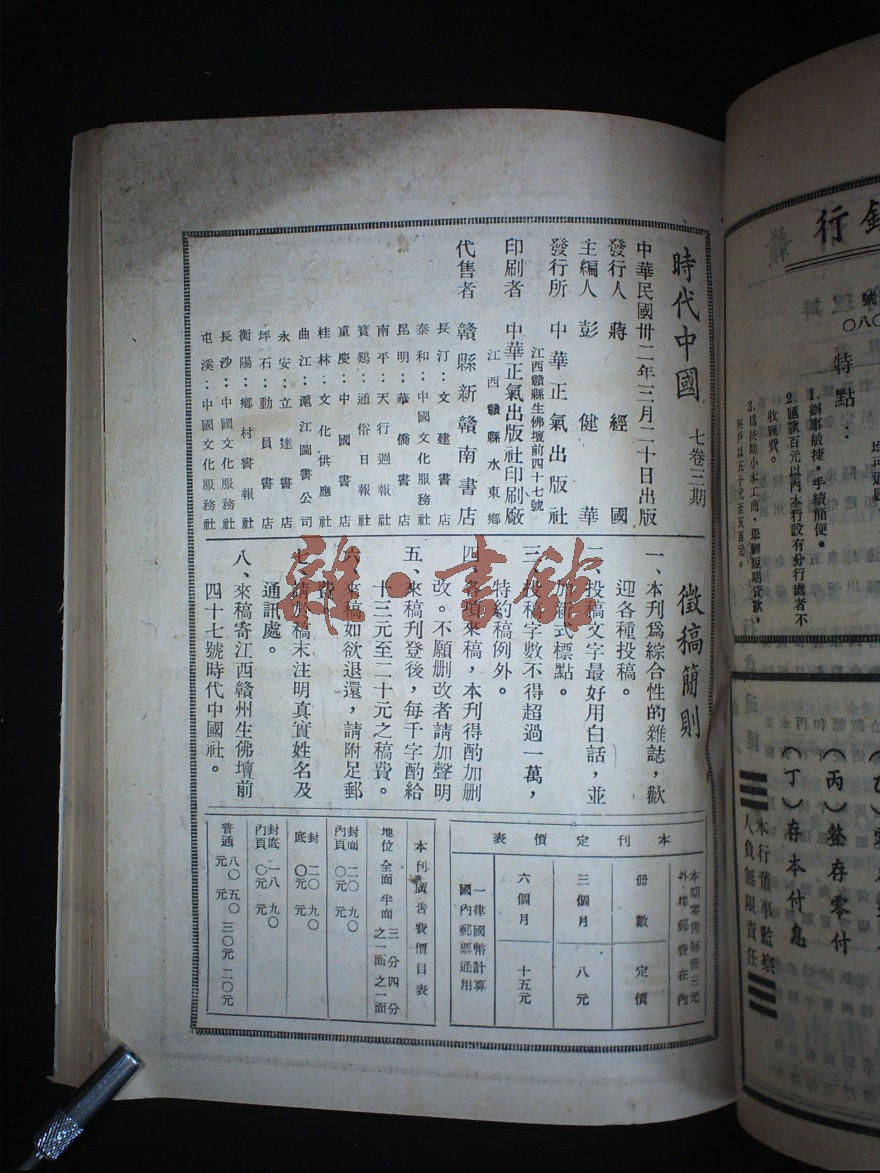 時代中國 七卷三期
中華民國卅二年三月二十日出版
發行人 蔣經國
主編人 彭健華
發行所 中華正氣出版社
江西贛縣生佛壇前四十七號
印刷者 中華正氣出版社印刷廠
江西贛縣水東鄉
代售者 贛縣新贛南書店
長汀:文建書店
泰和:中國文化服務社
昆明:華僑書店
南平:天行週報社
寶鷄:通俗日報社
重慶:中國書店
桂林:文化供應社
曲江:滬江圖書公司
永安:立達書店
坪石:動員書店
衡陽:鄉村書報社
長沙:中國文化服務社
屯溪:中國文化服務社
徵稿簡則
一、本刊爲綜合性的雜誌,歡
迎各種投稿。
二、投稿文字最好用白話,並
加新式標點。
三、投稿字數不得超過一萬,
特約稿例外。
四、各項來稿,本刊得酌加删
改。不願删改者請加聲明
五、來稿刊登後,每千字酌給
十三元至二十元之稿費。
六、來稿如欲退還,請附足郵
費。
七、請於稿末注明真實姓名及
通訊處。
八、來稿寄江西贛州生佛壇前
四十七號時代中國社。
本刊定價表
本期零售每册三元
外埠郵費在內
册數 定價
三個月 八元
六個月 十五元
一律國幣計算
國內郵票通用
本刊廣告費價目表
地位 全面 半面 三分之一面 四分之一面
封面內頁 二〇〇元 九〇元
封底 二〇〇元 九〇元
封底內頁 一八〇元 九〇元
普通 八〇元 五〇元 三〇元 二〇元
雜·書館
銀行
特點:
1.辦事敏捷,手續簡便。
2.匯款百元以內本行設有分行處者不
收匯費。
3.爲扶助小本工商,舉辦短期貸款,
每戶以五十元至五百元。
(丙)整存零付
(丁)存本付息
本行董事監察
人負無限責任